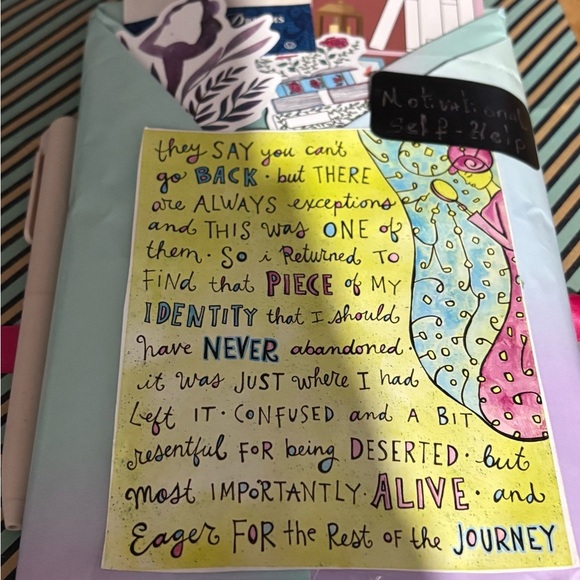 Motivational
Self-Help
they SAY you can't
go BACK · but THERE
are ALWAYS exceptions
and THIS was ONE of
them. So i Returned TO
FiNd that PIECE of MY
IDENTITY that I should
have NEVER abandoned.
it was JUST where I had
Left IT · CONFUSED and A BIT
resentful FOR being DESERTED · but
most IMPORTANTLY. ALIVE · and
Eager FOR the Rest of the JOURNEY